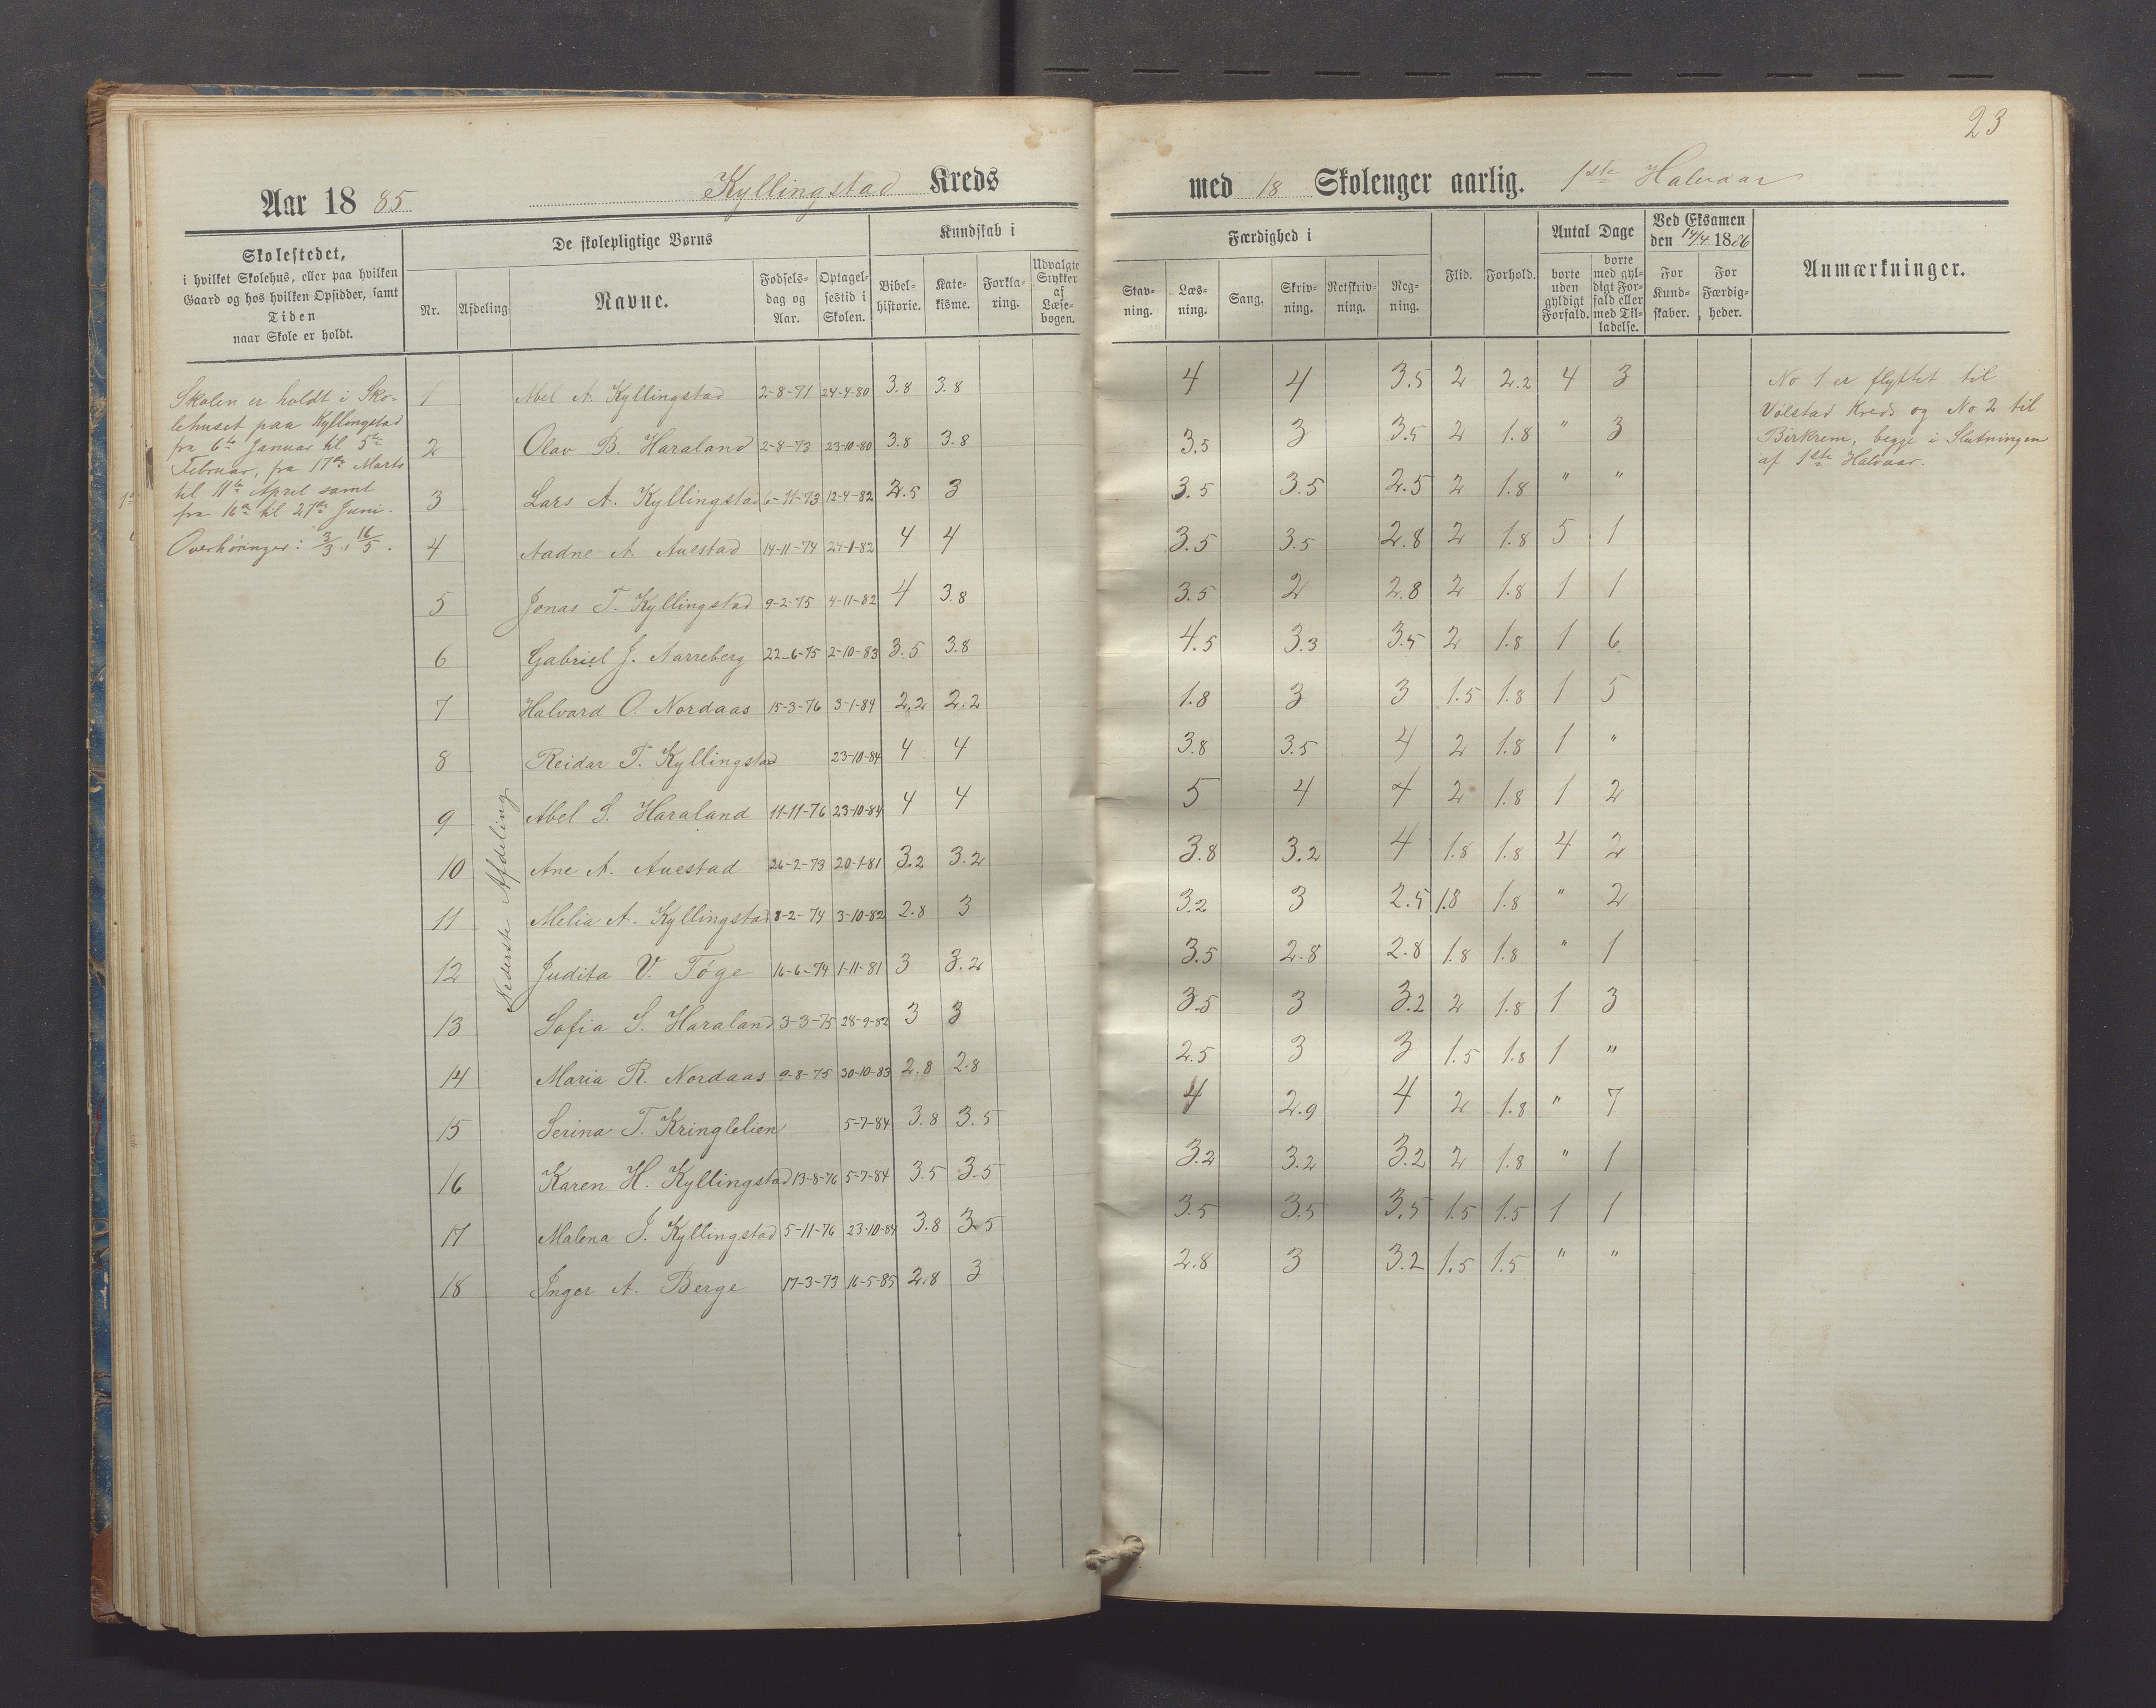 23
Aar 1885 Kyllingstad Kreds med 18 Skolenger aarlig. 1ste Halvaar
Skolestedet,
i hvilket Skolehus, eller paa hvilken
Gaard og hos hvilken Opsidder, samt
Tiden
naar Skole er holdt.
De skolepligtige Børns
Nr. Afdeling Navne. Fødsels-dag og Aar. Optagel-sestid i Skolen.
Kundskab i
Bibel-historie. Kate-kisme. Forkla-ring. Udvalgte Stykker af Læse-bogen.
Færdighed i
Stav-ning. Læs-ning. Sang. Skriv-ning. Retskriv-ning. Reg-ning.
Flid. Forhold.
Antal Dage
borte uden gyldigt Forfald. borte med gyl-digt For-fald eller med Til-ladelse.
Ved Eksamen
den 14/4 1886
For Kund-skaber. For Færdig-heder.
Anmærkninger.
Skolen er holdt i Sko-
lehuset paa Kyllingstad
fra 6te Januar til 5te
Februar, fra 17de Marts
til 11te April samt
fra 16de til 27de Juni.
Overhøringer: 3/3, 16/5.
Nederste Afdeling
1 Abel A. Kyllingstad 2-8-71 24-4-80 3.8 3.8 4 4 3.5 2 2.2 4 3
2 Olav B. Haraland 2-8-73 23-10-80 3.8 3.8 3.5 3 3.5 2 1.8 " 3
3 Lars A. Kyllingstad 6-11-73 12-4-82 2.5 3 3.5 3.5 2.5 2 1.8 " "
4 Aadne A. Auestad 14-11-74 24-1-82 4 4 3.5 3.5 2.8 2 1.8 5 1
5 Jonas T. Kyllingstad 9-2-75 4-11-82 4 3.8 3.5 2 2.8 2 1.8 1 1
6 Gabriel J. Aarreberg 22-6-75 2-10-83 3.5 3.8 4.5 3.3 3.5 2 1.8 1 6
7 Halvard O. Nordaas 15-3-76 3-1-84 2.2 2.2 1.8 3 3 1.5 1.8 1 5
8 Reidar T. Kyllingstad 23-10-84 4 4 3.8 3.5 4 2 1.8 1 "
9 Abel S. Haraland 11-11-76 23-10-84 4 4 5 4 4 2 1.8 1 2
10 Ane A. Auestad 26-2-73 20-1-81 3.2 3.2 3.8 3.2 4 1.8 1.8 4 2
11 Melia A. Kyllingstad 8-2-74 3-10-82 2.8 3 3.2 3 2.5 1.8 1.8 " 2
12 Judita V. Tøge 16-6-74 1-11-81 3 3.2 3.5 2.8 2.8 1.8 1.8 " 1
13 Sofia S. Haraland 3-3-75 28-9-82 3 3 3.5 3 3.2 2 1.8 1 3
14 Maria R. Nordaas 9-8-75 30-10-83 2.8 2.8 2.5 3 3 1.5 1.8 1 "
15 Serina T. Kringlelien 5-7-84 3.8 3.5 4 2.9 4 2 1.8 " 7
16 Karen H. Kyllingstad 13-8-76 5-7-84 3.5 3.5 3.2 3.2 3.2 2 1.8 " 1
17 Malena J. Kyllingstad 5-11-76 23-10-84 3.8 3.5 3.5 3.5 3.5 1.5 1.5 1 1
18 Inger A. Berge 17-3-73 16-5-85 2.8 3 2.8 3 3.2 1.5 1.5 " "
No 1 er flyttet til
Vølstad Kreds og No 2 til
Birkrem, begge i Slutningen
af 1ste Halvaar.